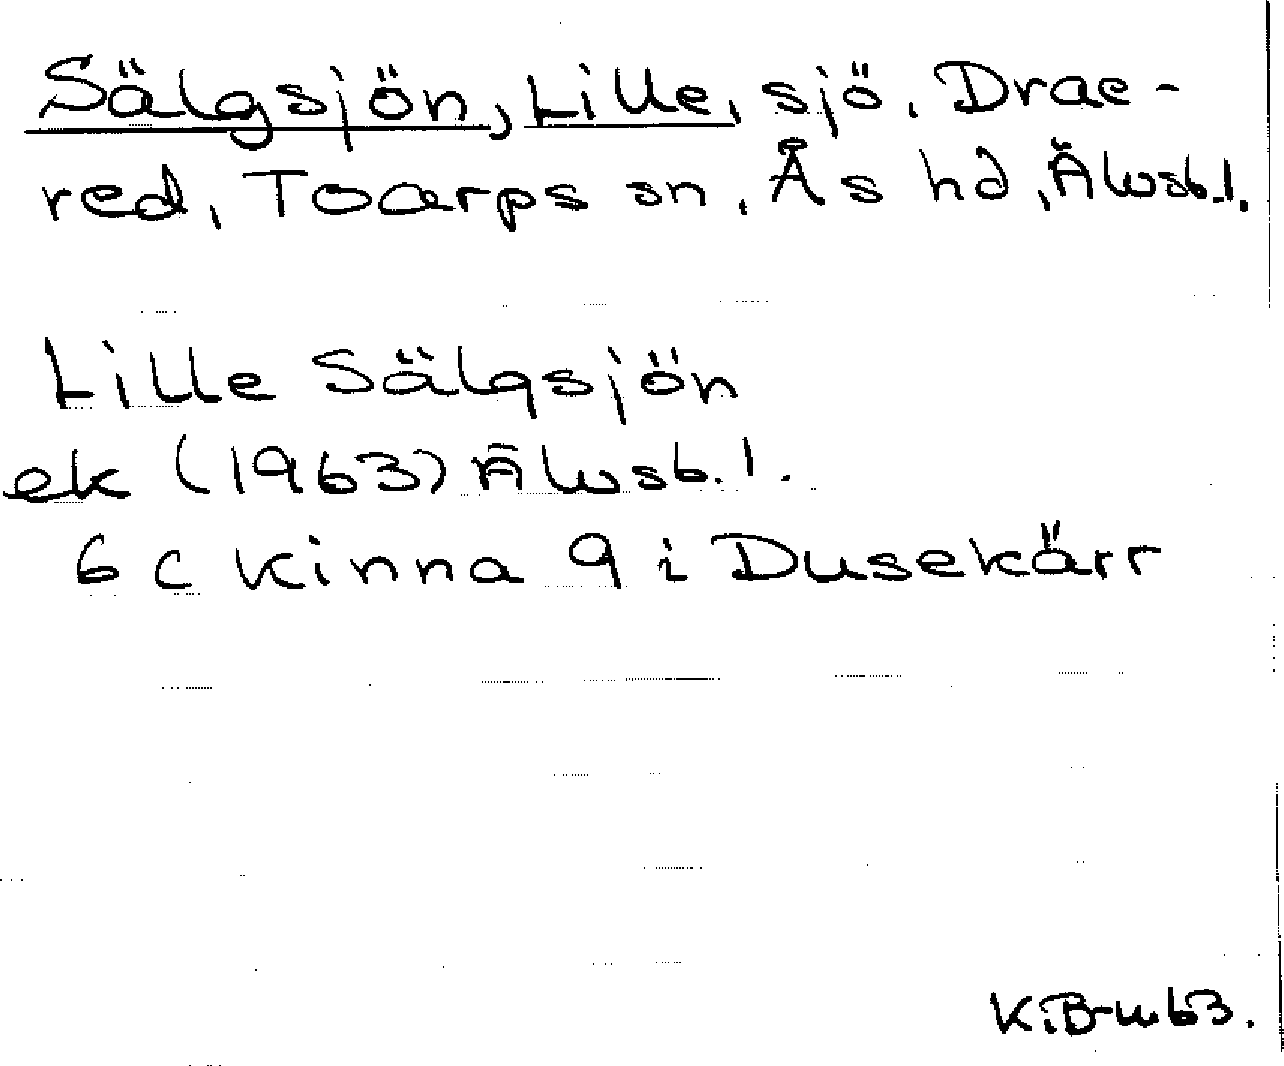 Sälgsjön, Lille, sjö, Drae-
red, Toarps sn, Ås hd, Älvsb.l.
Lille Sälgsjön
ek (1963) Älvsb.l.
6 c Kinna 9 i Dusekärr